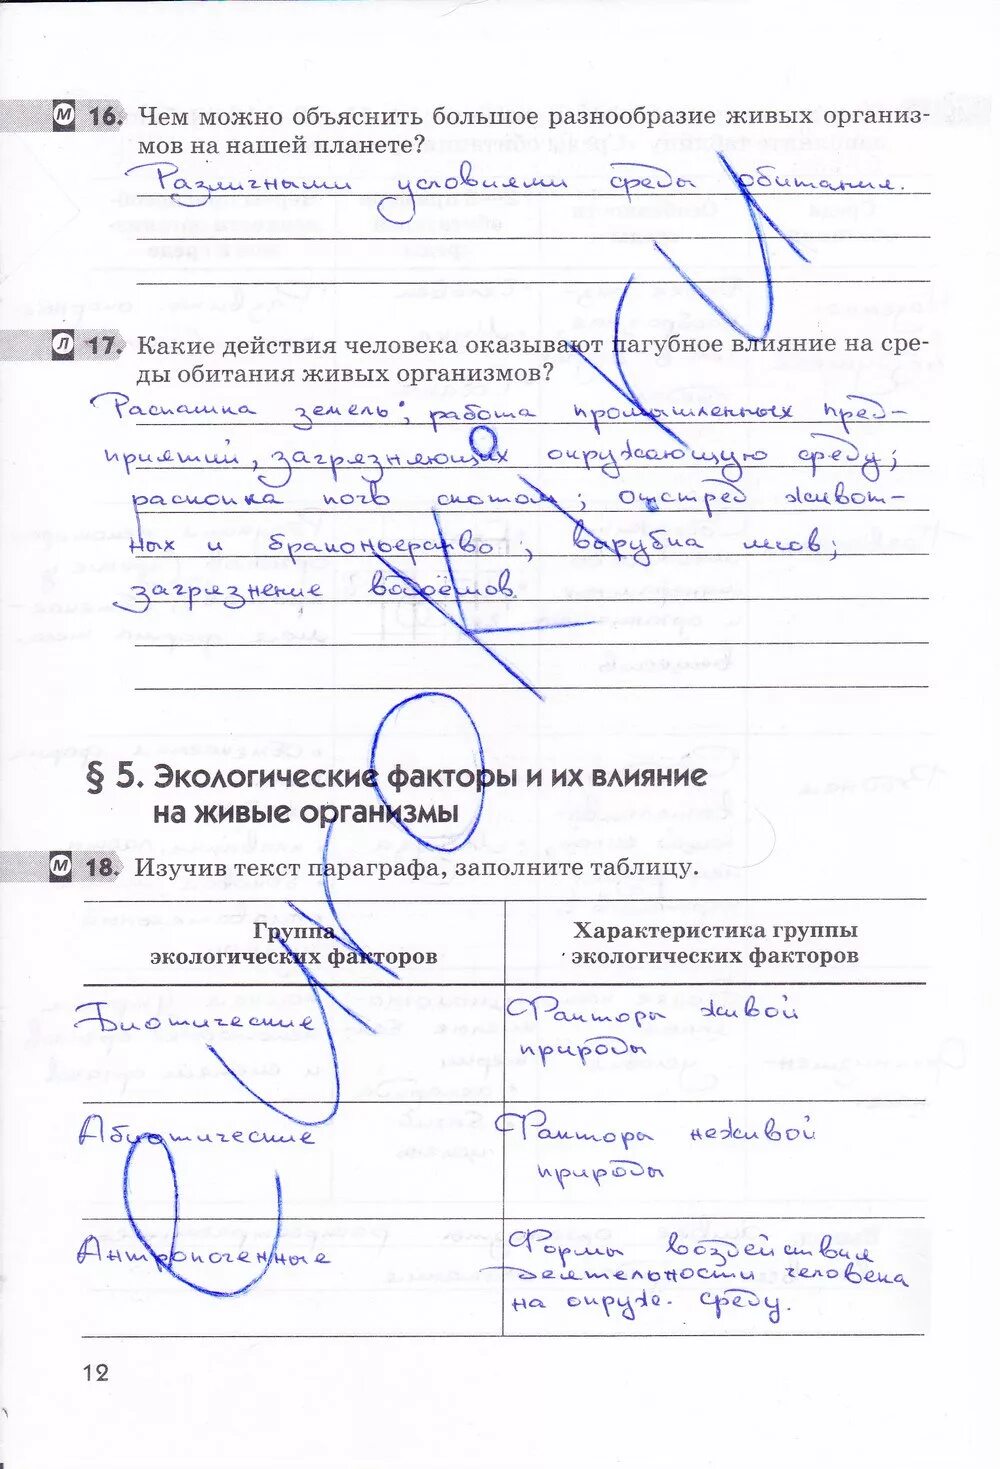 М 16. Чем можно объяснить большое разнообразие живых организ-
мов на нашей планете?
Различными условиями среды обитания.
Л 17. Какие действия человека оказывают пагубное влияние на сре-
ды обитания живых организмов?
Распашка земель; работа промышленных пред-
приятий, загрязняющих окружающую среду;
распопка почв скотом; отстрел живот-
ных и браконьерство, вырубка лесов;
загрязнение водоёмов.
§ 5. Экологические факторы и их влияние
на живые организмы
М 18. Изучив текст параграфа, заполните таблицу.
Группа
экологических факторов
Характеристика группы
экологических факторов
Биотические
Факторы живой
природы
Абиотические
Факторы неживой
природы
Антропогенные
Формы воздействия
деятельности человека
на окруж. среду.
12